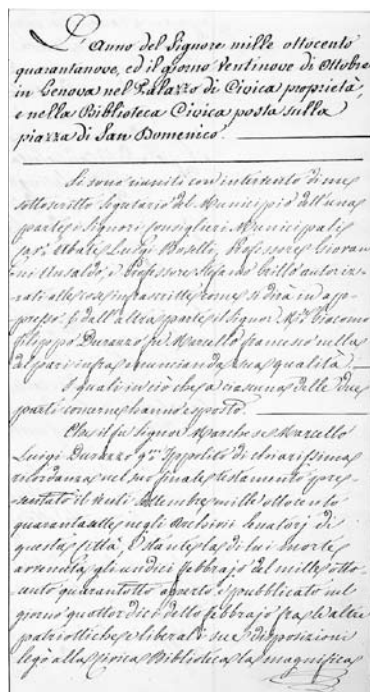 L'anno del Signore mille ottocento
quarantanove, ed il giorno Ventinove di Ottobre
in Genova nel Palazzo di Civica proprietà,
e nella Biblioteca Civica posta sulla
piazza di San Domenico.
Si sono riuniti con intervento di me
sottoscritto Segretario del Municipio dell'una
parte i Signori Consiglieri Municipali
Abate Luigi Boselli, Professore Giovan-
ni Ansaldo, e Professore Stefano Grillo autoriz-
zati alle cose infrascritte come si dirà in ap-
presso. E dell'altra parte il Signor Giacomo
Filippo Durazzo fu Marcello Francesco nella
del pari infra enuncianda sua qualità.
I quali in ciò che a ciascuna delle due
parti concerne hanno esposto.
Che il fu Signor Marchese Marcello
Luigi Durazzo q.m Ippolito di chiarissima
ricordanza nel suo finale testamento pre-
sentato il venti Settembre mille ottocento
quarantasette negli Archivii Senatorj di
questa Città, e stante la di lui morte
avvenuta gli undici febbrajo del mille otto-
cento quarantotto aperto e pubblicato nel
giorno quattordici detto febbrajo fra le altre
patriottiche e liberali sue disposizioni
legò alla Civica Biblioteca la magnifica